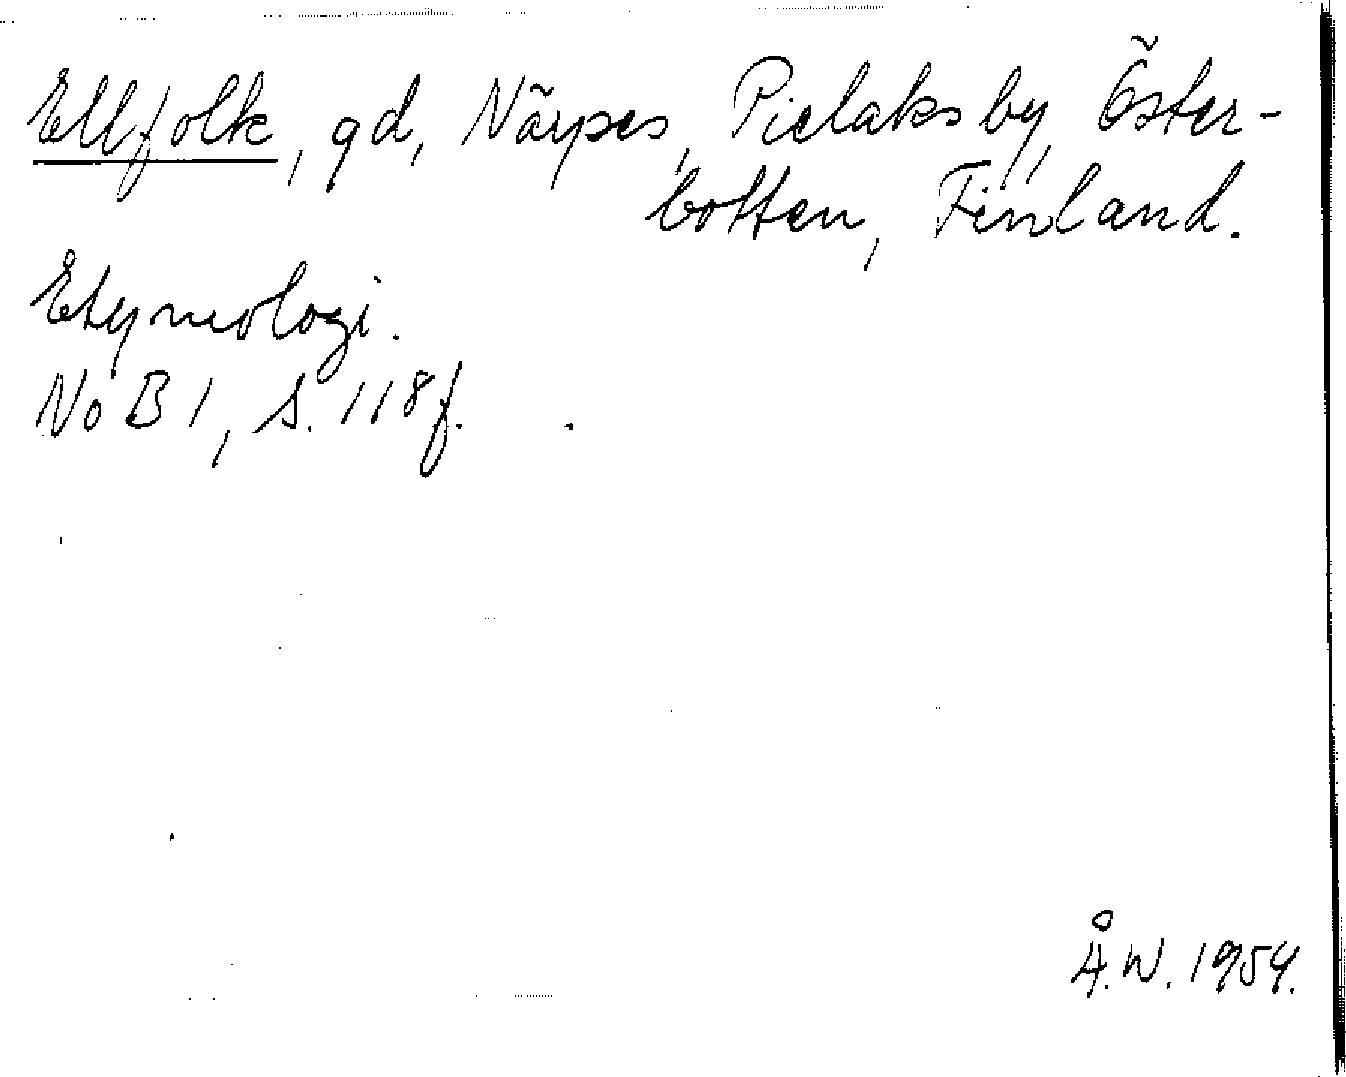 Ellfolk, gd, Närpes, Pielaks by, Öster-
botten, Finland.
Etymologi.
NoB 1, s. 118 f.
Å.W. 1954.